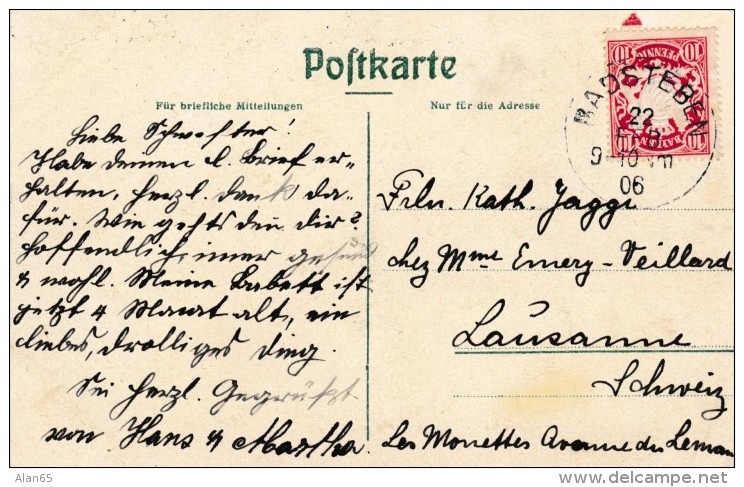 Postkarte
Für briefliche Mitteilungen
Nur für die Adresse
10 PFENNIG 10
BAYERN
BAD STEBEN
22
FEB
9-10 Vm
06
Liebe Schwester!
Habe deinen l. Brief er-
halten, herzl. dank da-
für. Wie gehts den dir?
hoffendlich imer gesund
& wohl. Meine Babett ist
jetzt 4 Monat alt, ein
liebes, drolliges Ding.
Sei herzl. Gegrüßt
von Hans & Martha.
Frln. Kath. Jaggi
chez Mme Emery-Veillard
Lausanne
Schweiz
Les Mouettes Avenue du Leman
Alan65
delcampe.net